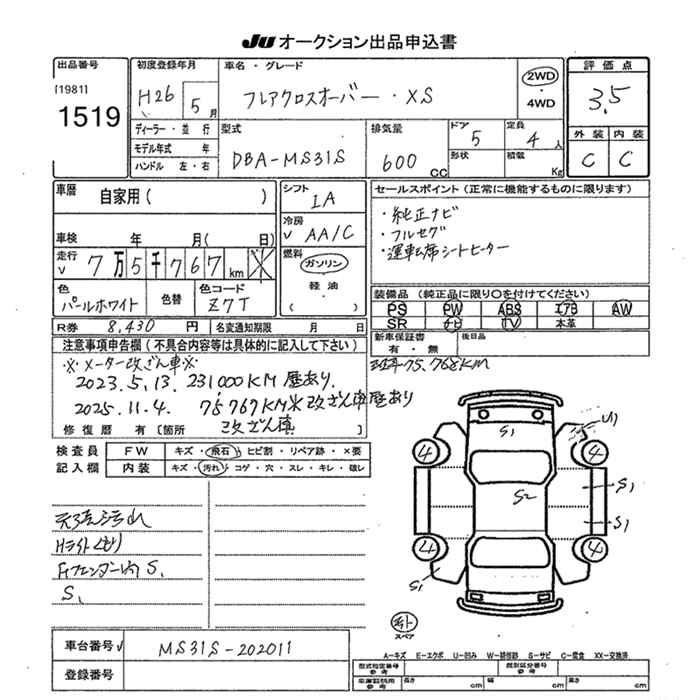 JU オークション出品申込書
出品番号 初度登録年月 車名・グレード 2WD 評価点
[1981] H26 5月 フレアクロスオーバー・XS ・4WD 3.5
1519
ディーラー・並行 型式 排気量 ドア 定員 外装 内装
モデル年式 年 DBA-MS31S 600cc 5 4人 C C
ハンドル 左・右 形状 積載 Kg
車歴 自家用( ) シフト IA セールスポイント(正常に機能するものに限ります)
車検 年 月( 日) 冷房 AA/C ・純正ナビ
・フルセグ
走行 7万5千767km ※ 燃料 ガソリン ・運転席シートヒーター
軽油・
( )
色 パールホワイト 色替 色コード Z7T 装備品(純正品に限り○を付けてください)
PS PW ABS エアB AW
R券 8,430円 名変通知期限 月 日 SR ナビ TV 本革
注意事項申告欄(不具合内容等は具体的に記入して下さい) 新車保証書 有・無 後日品
※メーター改ざん車※ 75.768KM
2023.5.13. 231000KM 歴あり
2025.11.4. 75767KM※改ざん車歴あり
修復歴 有(箇所 改ざん車
検査員 FW キズ・飛石・ヒビ割・リペア跡・×要
記入欄 内装 キズ・汚れ・コゲ・穴・スレ・キレ・破レ
天張汚れ
Hライトくもり
S1
S1
U1
4 4
S2
S1
S1
4 4
S1
スペア
車台番号 MS31S-202011
登録番号
A-キズ E-エクボ U-凹み W-補修跡 S-サビ C-腐食 XX-交換済
型式指定番号 参考 類別区分番号 参考
車庫証明用 参考 長さ cm 幅 cm 高さ cm